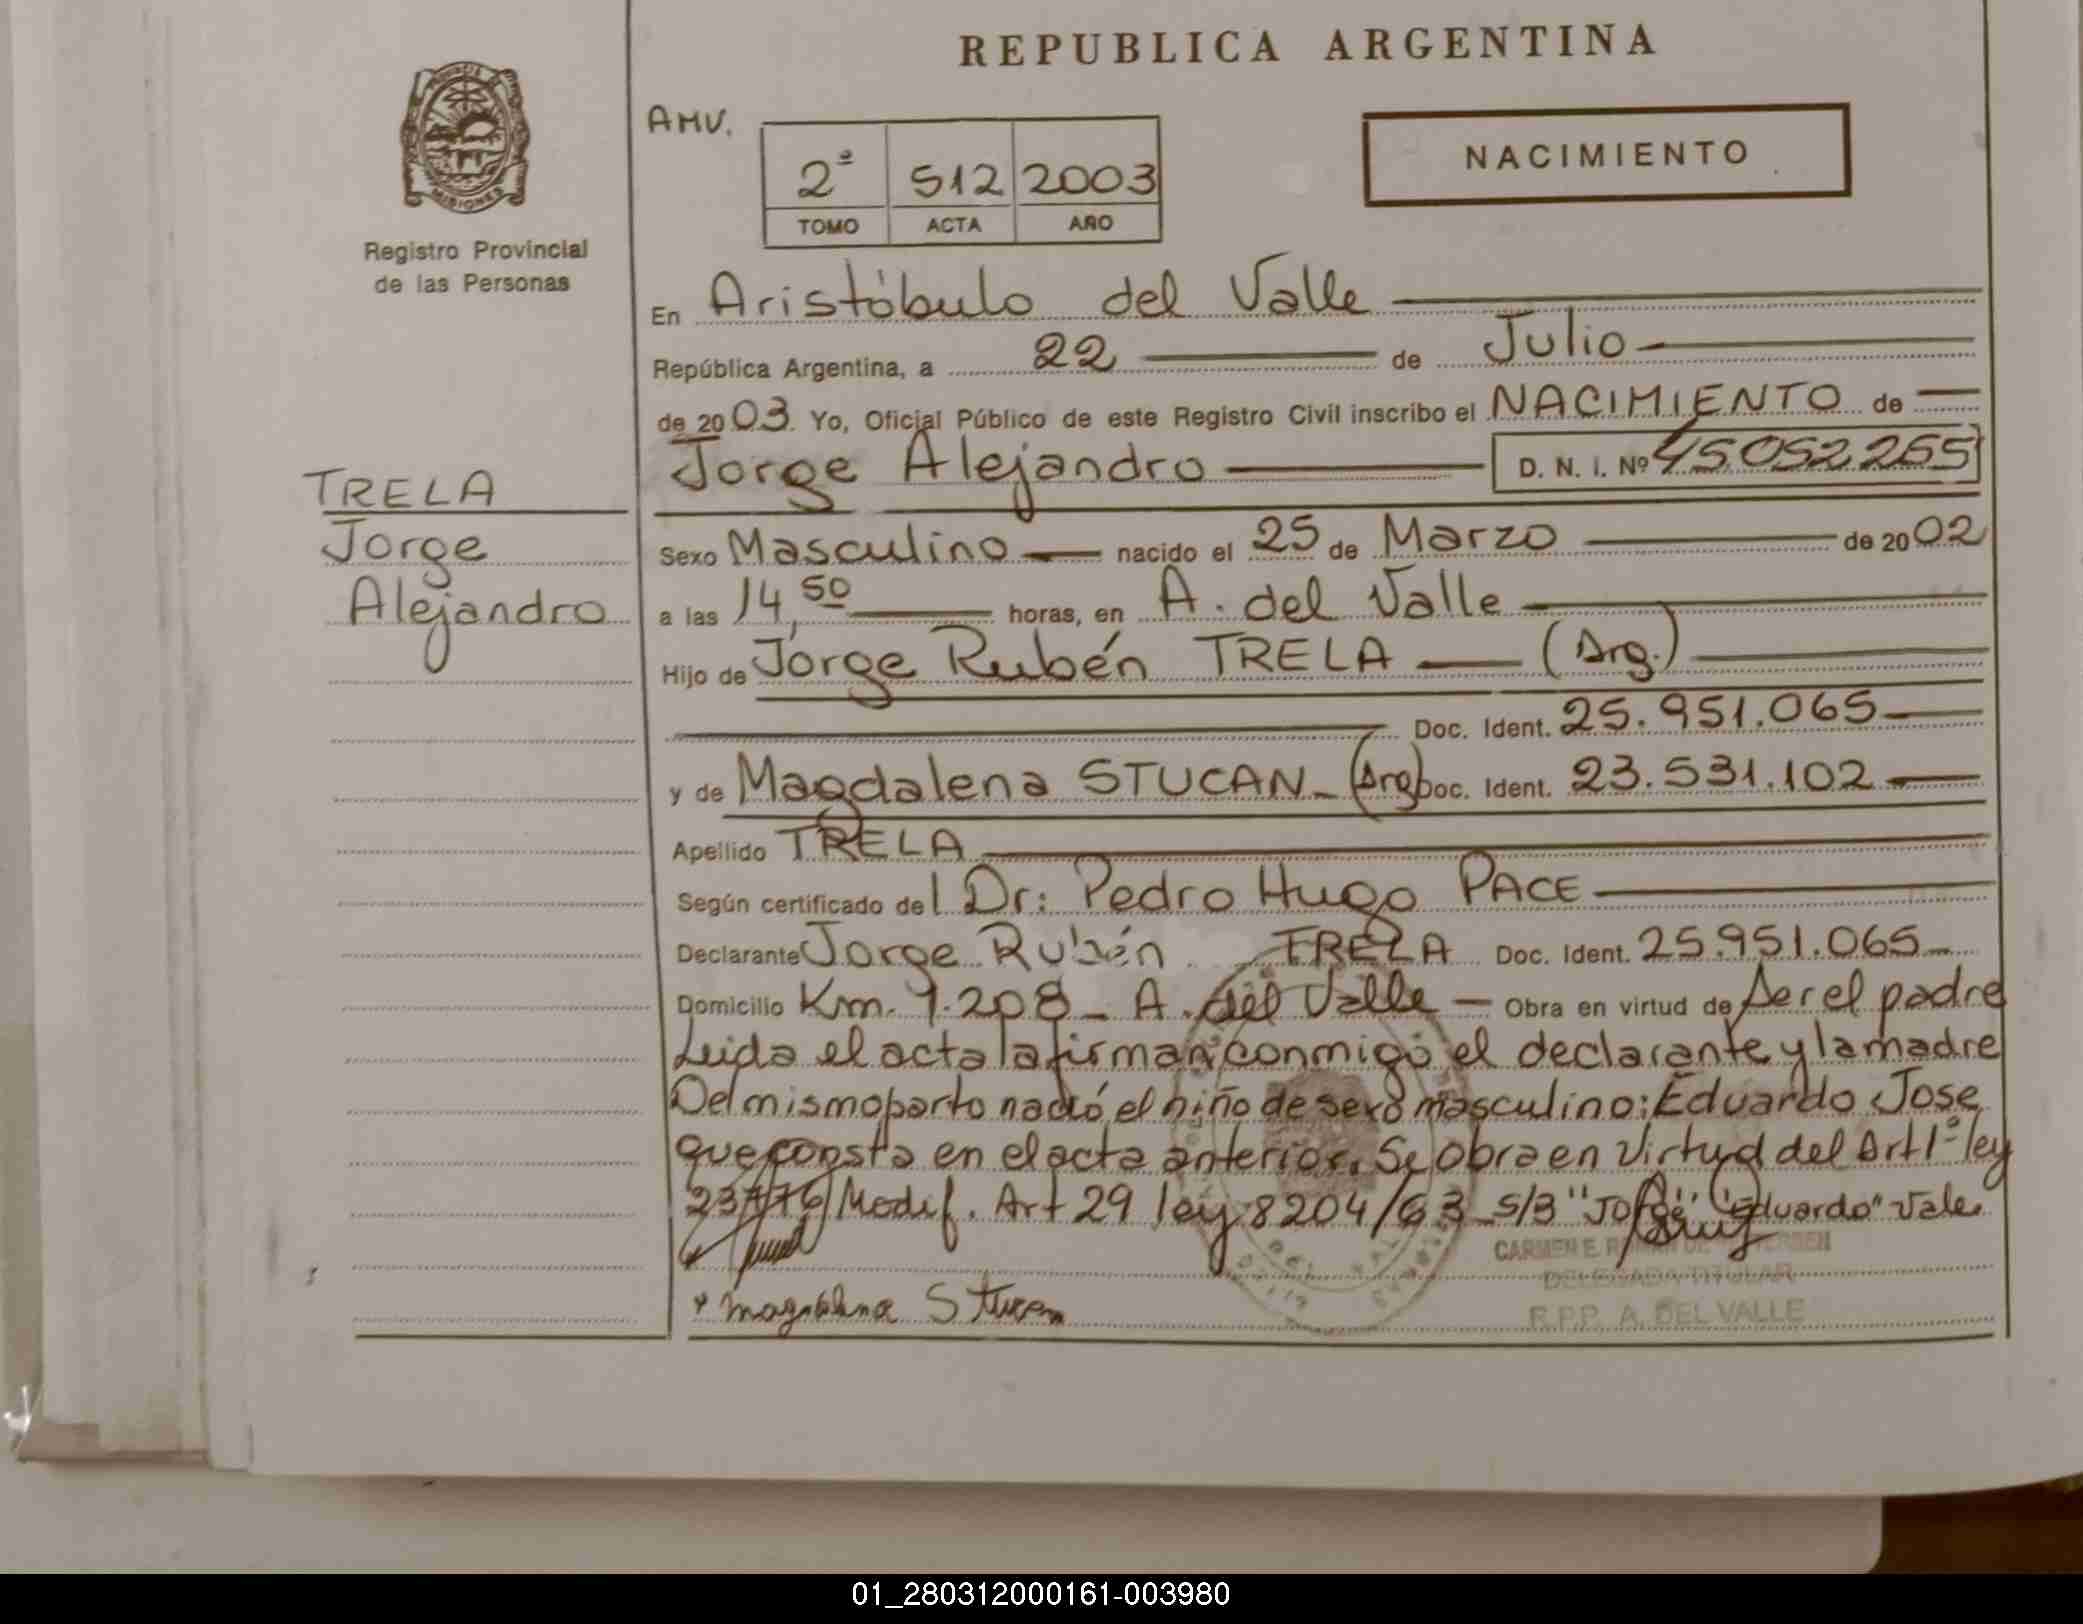 REPUBLICA ARGENTINA
PROVINCIA DE
MISIONES
Registro Provincial
de las Personas
AMV.
2ª 512 2003
TOMO ACTA AÑO
NACIMIENTO
En Aristóbulo del Valle
República Argentina, a 22 de Julio
de 2003 Yo, Oficial Público de este Registro Civil inscribo el NACIMIENTO de
Jorge Alejandro D. N. I. Nº 45052265
TRELA
Jorge
Alejandro
Sexo Masculino nacido el 25 de Marzo de 2002
a las 14,50 horas, en A. del Valle
Hijo de Jorge Rubén TRELA (Arg.)
Doc. Ident. 25.951.065
y de Magdalena STUCAN (Arg) Doc. Ident. 23.531.102
Apellido TRELA
Según certificado del Dr: Pedro Hugo PACE
Declarante Jorge Rubén TRELA Doc. Ident. 25.951.065
Domicilio Km. 1.208 - A. del Valle Obra en virtud de ser el padre
Leida el acta la firman conmigo el declarante y la madre
Del mismo parto nació el niño de sexo masculino: Eduardo Jose
que consta en el acta anterior. Se obra en virtud del Art 1º ley
23776 Modif. Art 29 ley 8204/63 S/B "Jorge" "Eduardo" Vale
CARMEN E. ROMAN DE
DELEGADA TITULAR
R.P.P. A. DEL VALLE
Magdalena Stucan
01_280312000161-003980